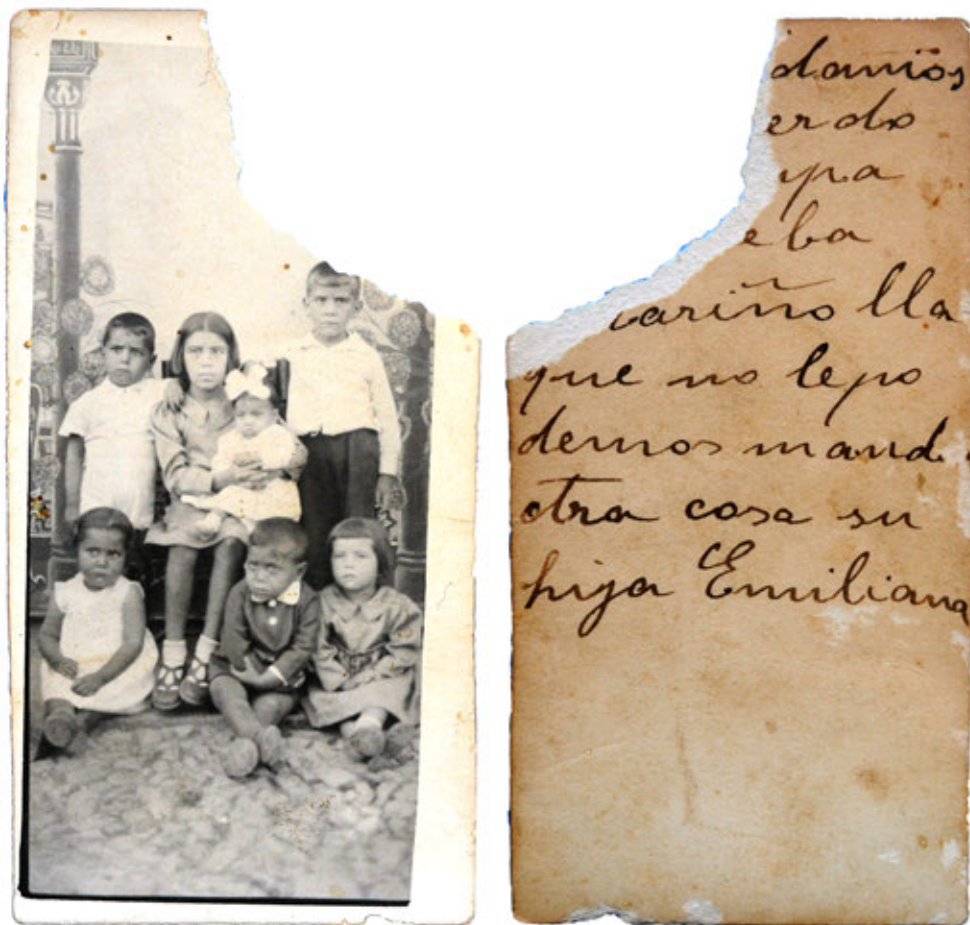 damos
erdo
ypa
eba
cariño lla
que no lepo
demos mand
otra cosa su
hija Emiliana